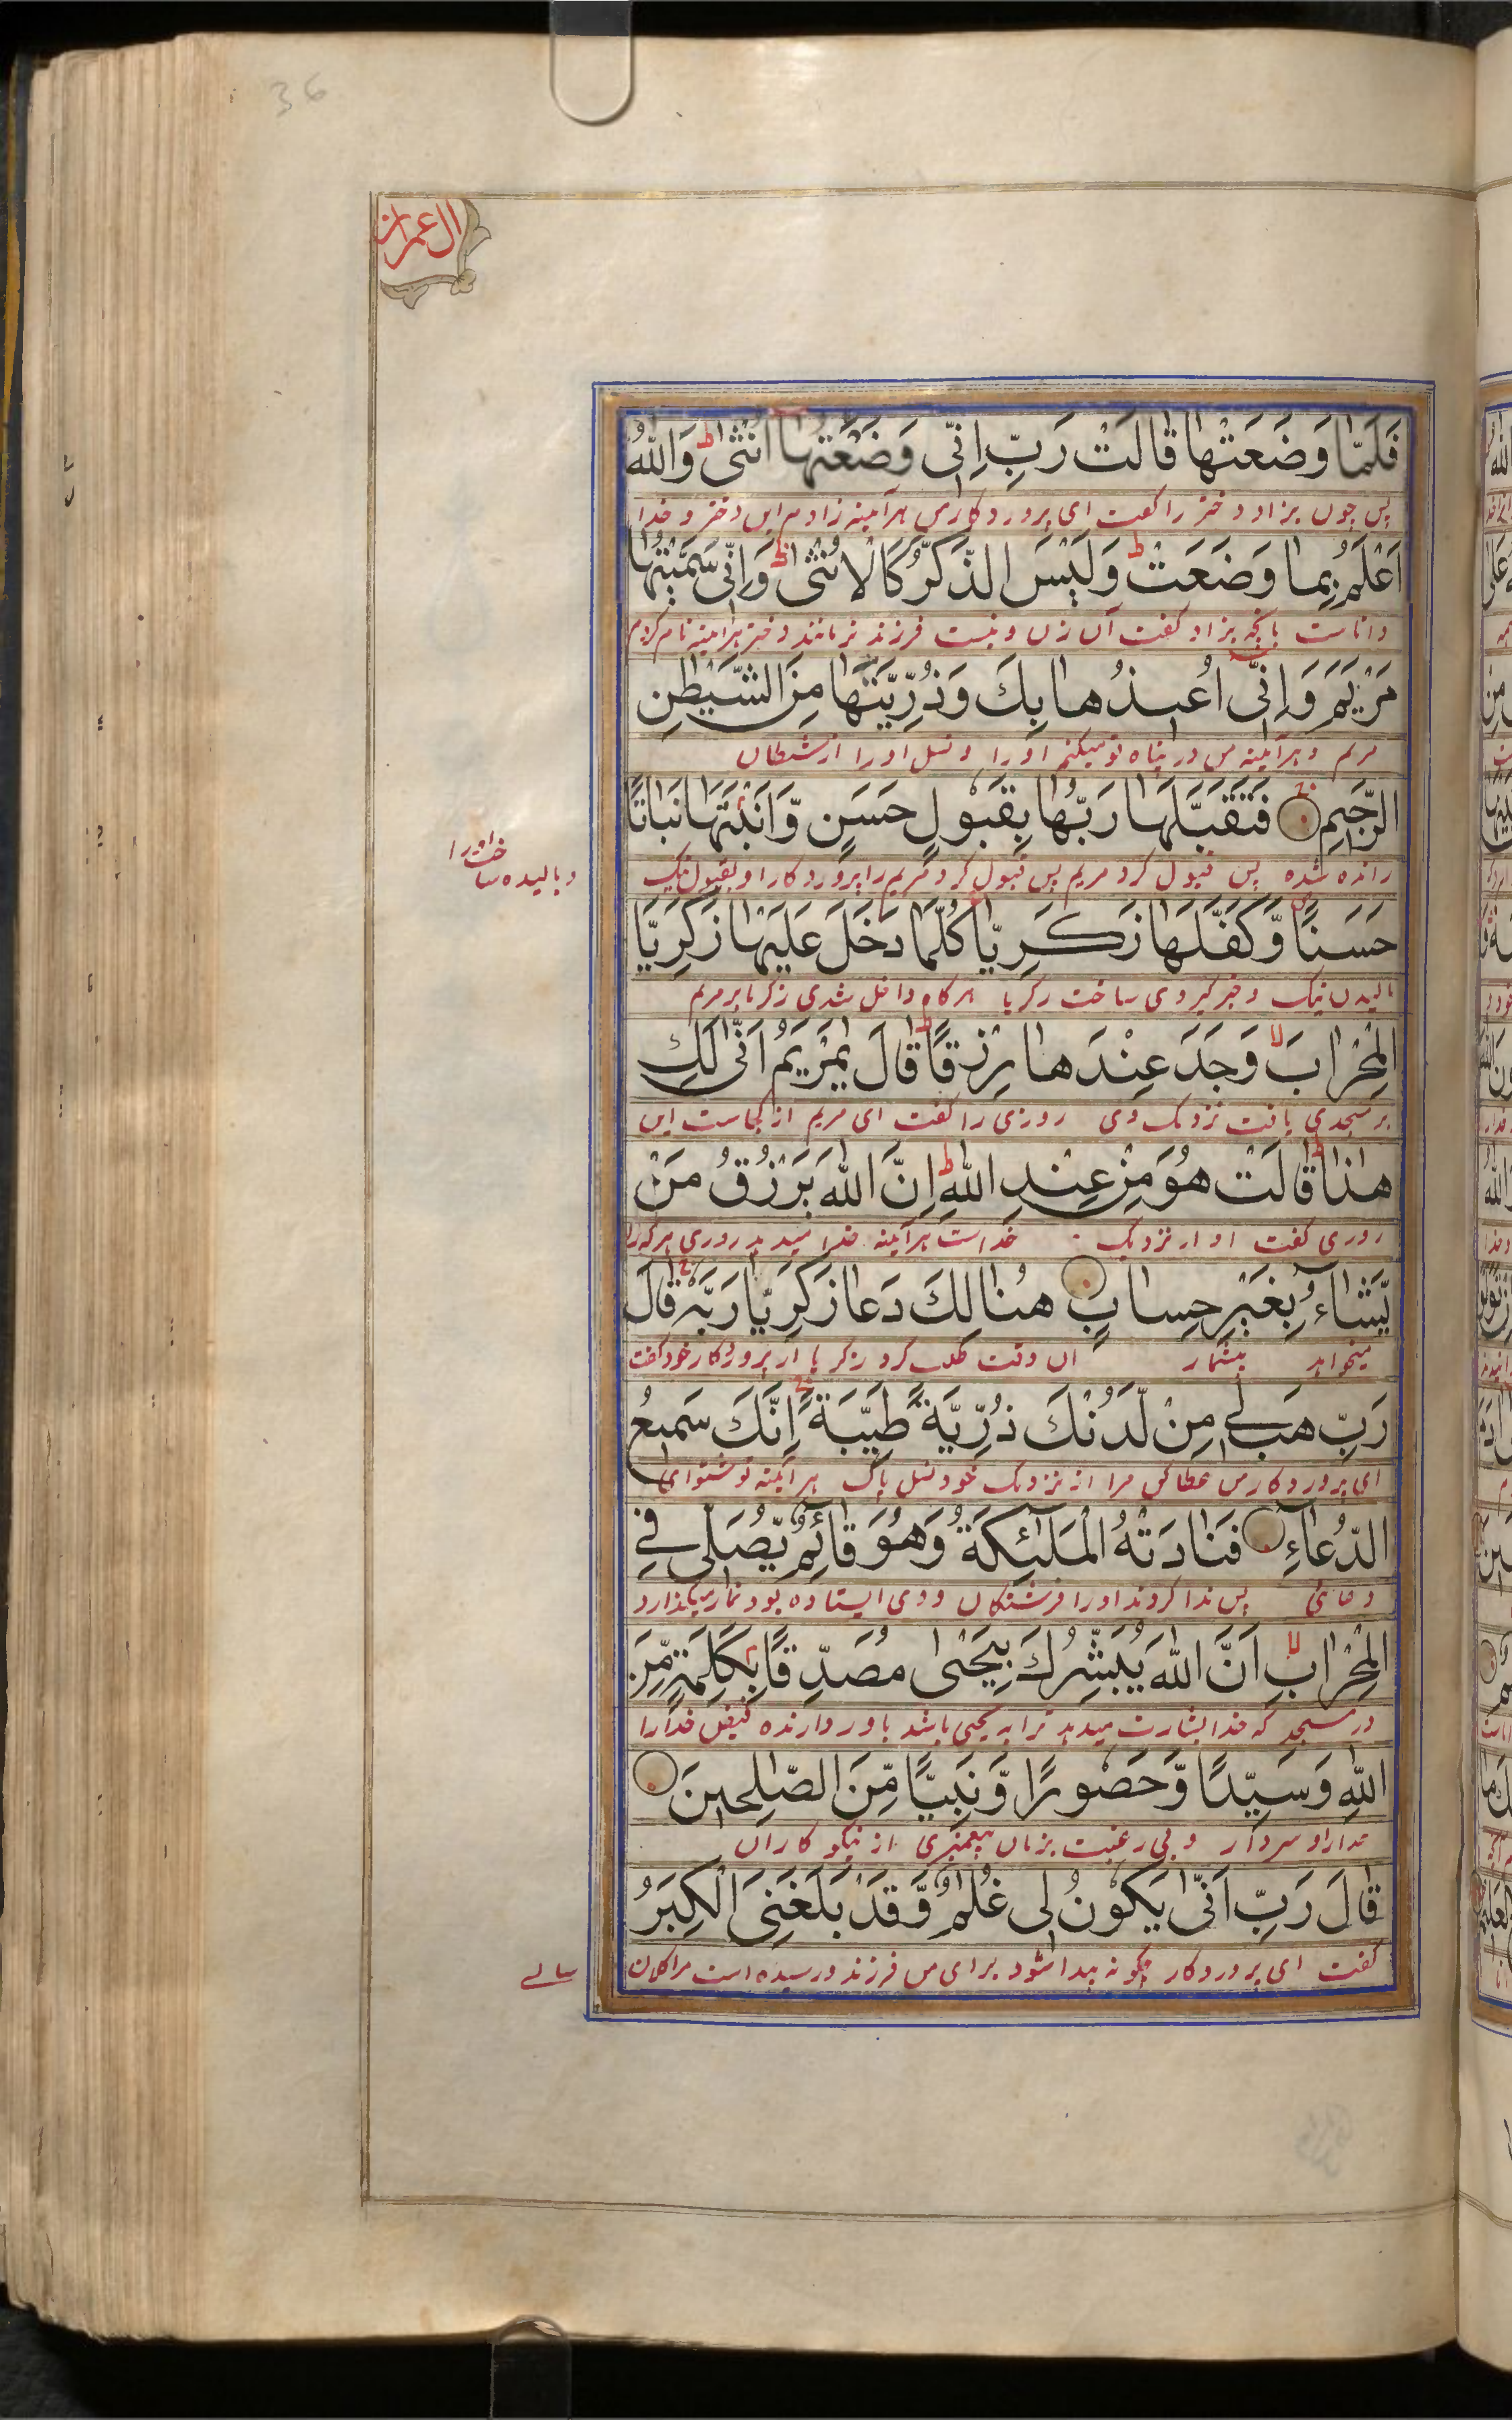 36
ال عمران
فَلَمَّا وَضَعَتْهَا قَالَتْ رَبِّ اِنِّی وَضَعْتُهَا اُنْثٰی ط وَاللّٰهُ
پس چون بزاد دختر را گفت ای پروردگار من هرآینه زادم این دختر و خدا
اَعْلَمُ بِمَا وَضَعَتْ ط وَلَیْسَ الذَّكَرُ كَالْاُنْثٰی ط وَاِنِّی سَمَّیْتُهَا
داناست بآنچه بزاد گفت آن زن و نیست فرزند نر مانند دختر هرآینه نام کردم
مَرْیَمَ وَاِنِّیْ اُعِیذُهَا بِكَ وَذُرِّیَّتَهَا مِنَ الشَّیْطٰنِ
مریم و هرآینه من در پناه تو میکنم او را و نسل او را از شیطان
الرَّجِیْمِ فَتَقَبَّلَهَا رَبُّهَا بِقَبُوْلٍ حَسَنٍ وَّاَنْبَتَهَا نَبَاتًا
رانده شده پس قبول کرد مریم پس قبول کرد مریم را پروردگار او بقبول نیک
و بالیده ساخت اورا
حَسَنًا وَّكَفَّلَهَا زَكَرِیَّا كُلَّمَا دَخَلَ عَلَیْهَا زَكَرِیَّا
بالیدن نیک و خبرگیر وی ساخت زکریا هرگاه داخل شدی زکریا بر مریم
الْمِحْرَابَ لا وَجَدَ عِنْدَهَا رِزْقًا ط قَالَ یٰمَرْیَمُ اَنّٰی لَكِ
بر مسجدی یافت نزدیک وی روزی را گفت ای مریم از کجاست این
هٰذَا ط قَالَتْ هُوَ مِنْ عِنْدِ اللّٰهِ ط اِنَّ اللّٰهَ یَرْزُقُ مَنْ
روزی گفت او از نزدیک خداست هرآینه خدا میدهد روزی هرکه را
یَّشَاءُ بِغَیْرِ حِسَابٍ هُنَالِكَ دَعَا زَكَرِیَّا رَبَّهٗ قَالَ
میخواهد بیشمار آن وقت طلب کرد زکریا از پروردگار خود گفت
رَبِّ هَبْ لِیْ مِنْ لَّدُنْكَ ذُرِّیَّةً طَیِّبَةً اِنَّكَ سَمِیْعُ
ای پروردگار من عطا کن مرا از نزدیک خود نسل پاک هرآینه تو شنوای
الدُّعَآءِ فَنَادَتْهُ الْمَلٰٓئِكَةُ وَهُوَ قَآئِمٌ یُّصَلِّیْ فِی
دعائی پس ندا کردند او را فرشتگان و وی ایستاده بود نماز میگذارد
الْمِحْرَابِ لا اَنَّ اللّٰهَ یُبَشِّرُكَ بِیَحْیٰی مُصَدِّقًا بِكَلِمَةٍ مِّنَ
در مسجد که خدا بشارت میدهد ترا به یحیی باشد باور دارنده خدا را
اللّٰهِ وَسَیِّدًا وَّحَصُوْرًا وَّنَبِیًّا مِّنَ الصّٰلِحِیْنَ
و سردار و بی رغبت بزنان پیغمبری از نیکو کاران
قَالَ رَبِّ اَنّٰی یَكُوْنُ لِیْ غُلٰمٌ وَّقَدْ بَلَغَنِیَ الْكِبَرُ
گفت ای پروردگار چگونه پیدا شود برای من فرزند و رسیده است مرا کلان
سالے